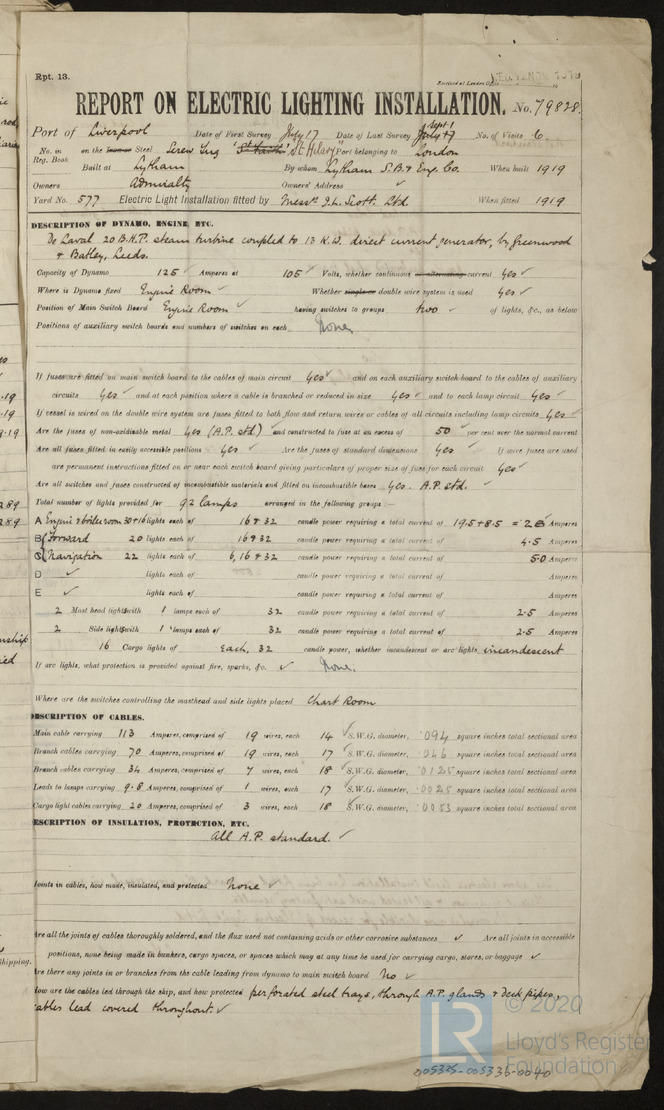 Rpt. 13.
REPORT ON ELECTRIC LIGHTING INSTALLATION. No. 79828.
Port of Liverpool Date of First Survey July 17 Date of Last Survey Sept 1 July 17 No. of Visits 6.
No. in Reg. Book on the Iron or Steel Screw Tug "St Hilary" Port belonging to London
Built at Lytham By whom Lytham S.B. & Eng. Co. When built 1919
Owners Admiralty Owners' Address ✓
Yard No. 577 Electric Light Installation fitted by Messrs J.L. Scott. Ltd. When fitted 1919
DESCRIPTION OF DYNAMO, ENGINE, ETC.
De Laval 20 B.H.P. steam turbine coupled to 13 K.W. direct current generator, by Greenwood
& Batley, Leeds.
Capacity of Dynamo 125 ✓ Amperes at 105 ✓ Volts, whether continuous or alternating current Yes ✓
Where is Dynamo fixed Engine Room ✓ Whether single or double wire system is used Yes ✓
Position of Main Switch Board Engine Room ✓ having switches to groups two ✓ of lights, &c., as below
Positions of auxiliary switch boards and numbers of switches on each None.
If fuses are fitted on main switch board to the cables of main circuit Yes ✓ and on each auxiliary switch board to the cables of auxiliary
circuits Yes ✓ and at each position where a cable is branched or reduced in size Yes ✓ and to each lamp circuit Yes ✓
If vessel is wired on the double wire system are fuses fitted to both flow and return wires or cables of all circuits including lamp circuits Yes ✓
Are the fuses of non-oxidizable metal Yes (A.P. std) ✓ and constructed to fuse at an excess of 50 ✓ per cent over the normal current
Are all fuses fitted in easily accessible positions Yes ✓ Are the fuses of standard dimensions Yes ✓ If wire fuses are used
are permanent instructions fitted on or near each switch board giving particulars of proper size of fuse for each circuit Yes ✓
Are all switches and fuses constructed of incombustible materials and fitted on incombustible bases Yes. A.P. std. ✓
Total number of lights provided for 92 lamps arranged in the following groups :—
A Engine & boiler room 30+16 lights each of 16 & 32 candle power requiring a total current of 19.5+8.5 = 28 Amperes
B Forward 20 lights each of 16 & 32 candle power requiring a total current of 4.5 Amperes
C Navigation 22 lights each of 6, 16 & 32 candle power requiring a total current of 5.0 Amperes
D ✓ lights each of candle power requiring a total current of Amperes
E ✓ lights each of candle power requiring a total current of Amperes
2 Mast head lights with 1 lamps each of 32 candle power requiring a total current of 2.5 Amperes
2 Side lights with 1 lamps each of 32 candle power requiring a total current of 2.5 Amperes
16 Cargo lights of Each, 32 candle power, whether incandescent or arc lights incandescent
If arc lights, what protection is provided against fire, sparks, &c. ✓ None.
Where are the switches controlling the masthead and side lights placed Chart Room
DESCRIPTION OF CABLES.
Main cable carrying 113 Amperes, comprised of 19 wires, each 14 ✓ S.W.G. diameter, .094 square inches total sectional area
Branch cables carrying 70 Amperes, comprised of 19 wires, each 17 ✓ S.W.G. diameter, .046 square inches total sectional area
Branch cables carrying 34 Amperes, comprised of 7 wires, each 18 ✓ S.W.G. diameter, .0125 square inches total sectional area
Leads to lamps carrying 9.8 Amperes, comprised of 1 wires, each 17 ✓ S.W.G. diameter, .0025 square inches total sectional area
Cargo light cables carrying 20 Amperes, comprised of 3 wires, each 18 ✓ S.W.G. diameter, .0053 square inches total sectional area
DESCRIPTION OF INSULATION, PROTECTION, ETC.
All A.P. standard. ✓
Joints in cables, how made, insulated, and protected None ✓
Are all the joints of cables thoroughly soldered, and the flux used not containing acids or other corrosive substances ✓ Are all joints in accessible
positions, none being made in bunkers, cargo spaces, or spaces which may at any time be used for carrying cargo, stores, or baggage ✓
Are there any joints in or branches from the cable leading from dynamo to main switch board No ✓
How are the cables led through the ship, and how protected perforated steel trays, through A.P. glands & deck pipes,
cables lead covered throughout. ✓
© 2020
LR Lloyd's Register
Foundation
005335-005335-0040